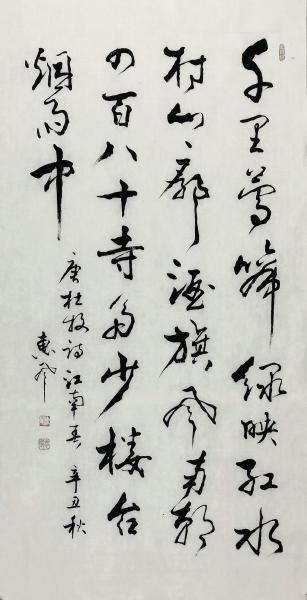 千里莺啼绿映红水
村山郭酒旗风南朝
四百八十寺多少楼台
烟雨中
唐杜牧诗江南春 辛丑秋
惠